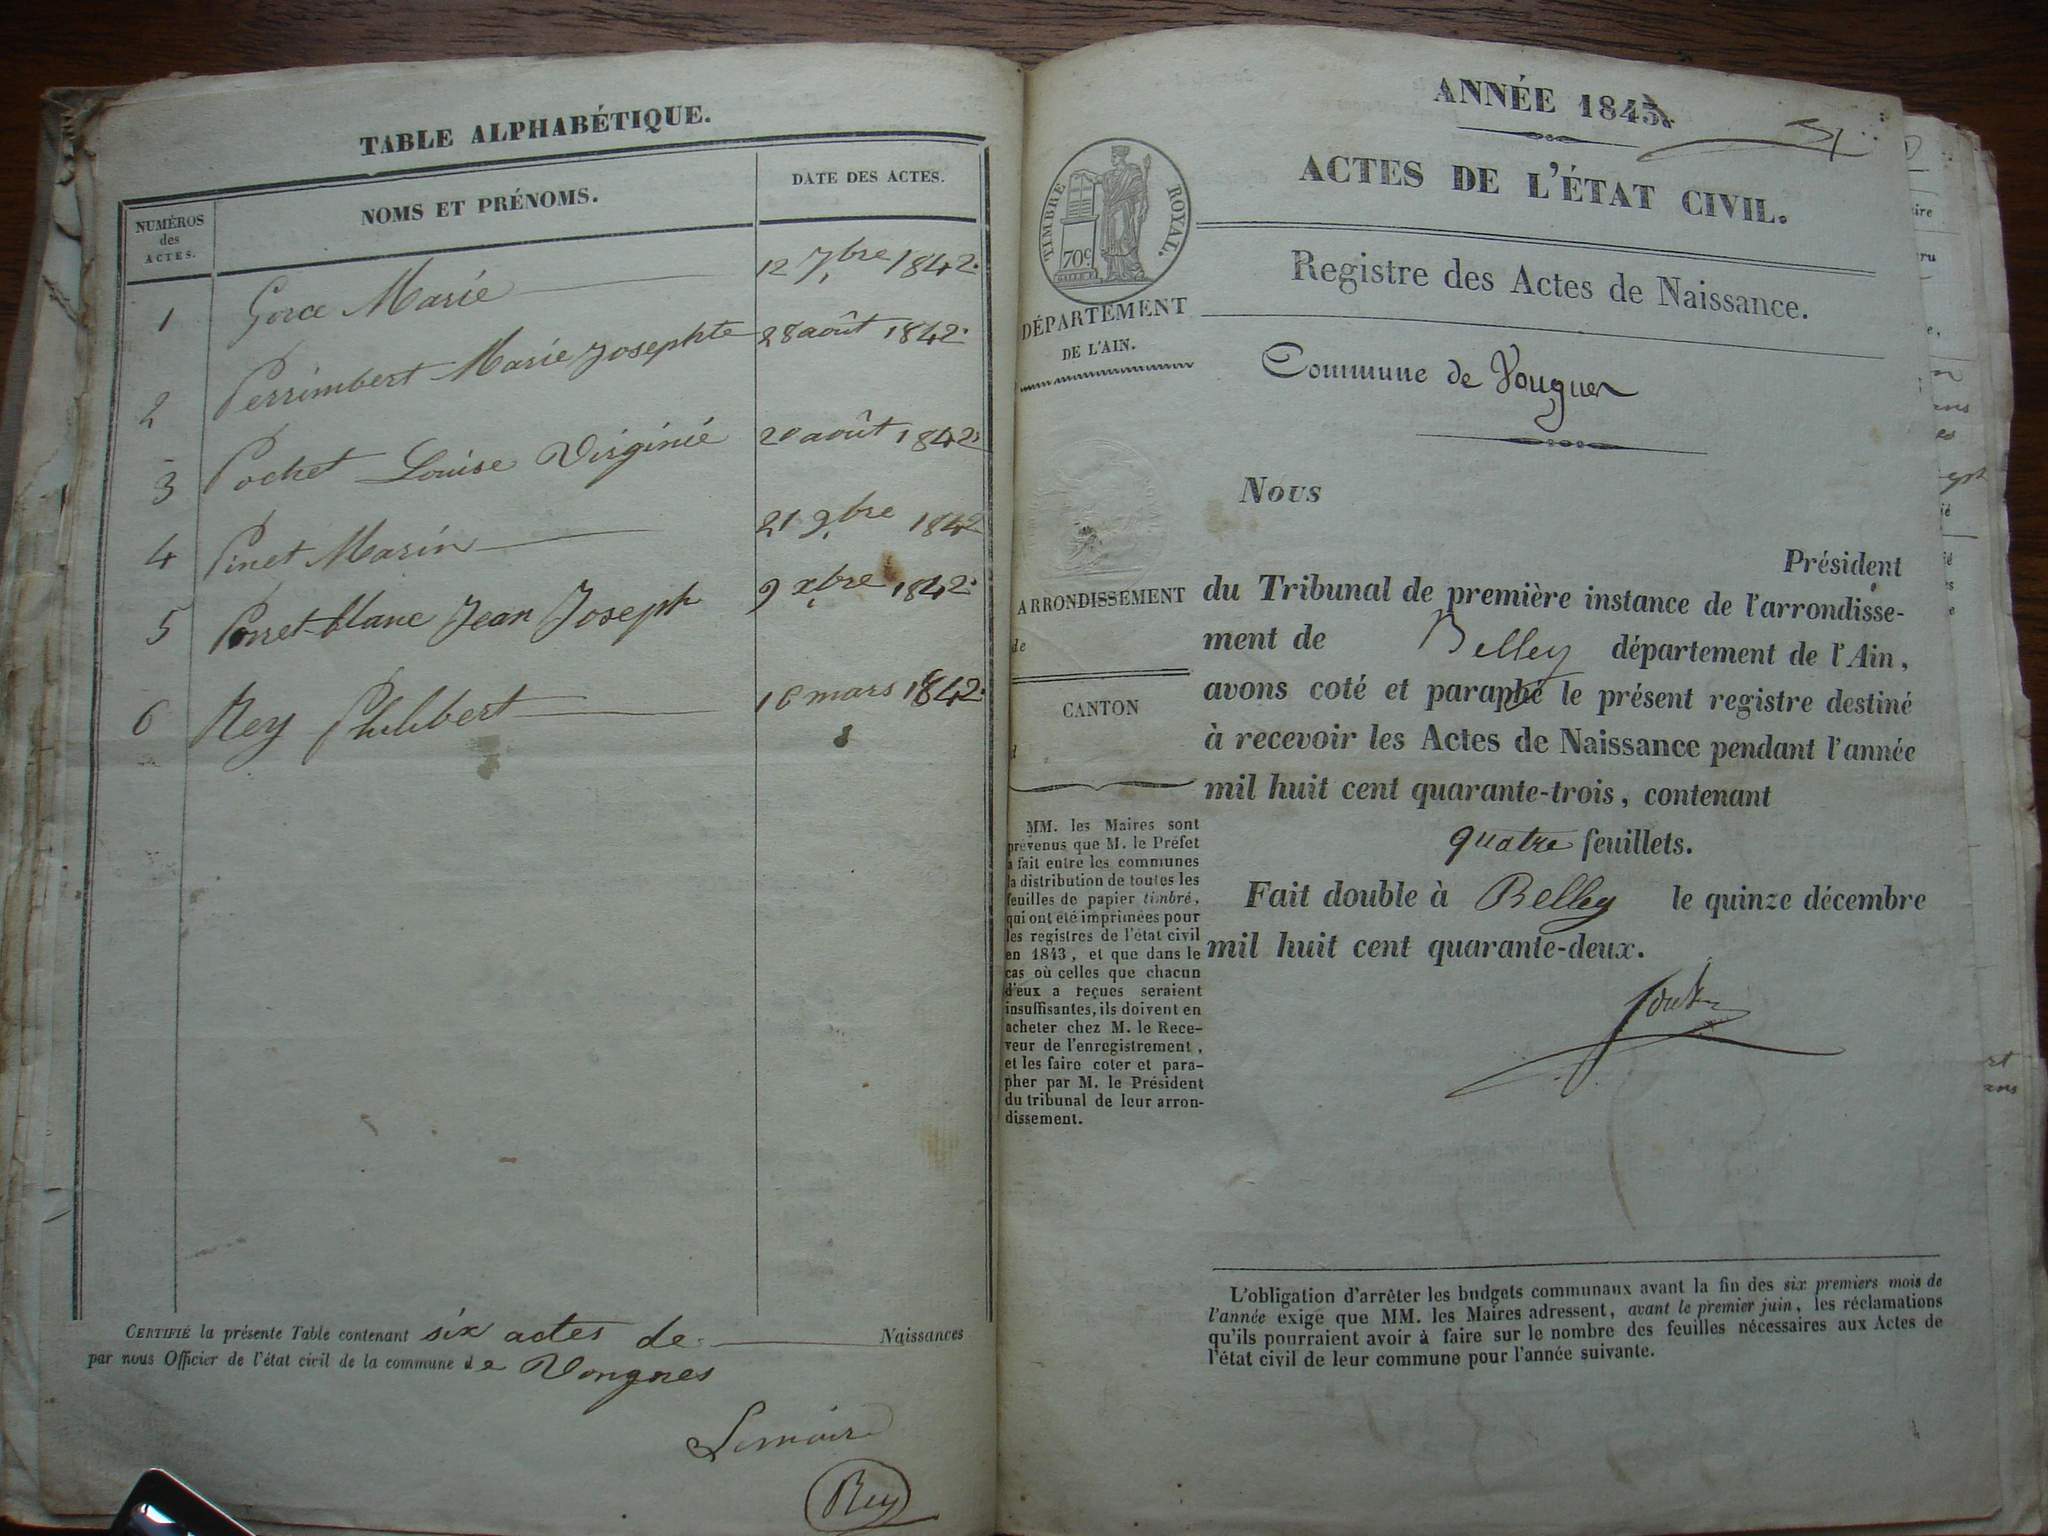 TABLE ALPHABÉTIQUE.
NUMÉROS
des
ACTES.
NOMS ET PRÉNOMS.
DATE DES ACTES.
1 Gorce Marie 12 7bre 1842.
2 Perrimbert Marie Josephte 28 août 1842.
3 Pochet Louise Virginie 20 août 1842
4 Pinet Marin 21 9bre 1842
5 Ponet-blanc Jean Joseph 9 xbre 1842.
6 Rey Philibert 16 mars 1842.
CERTIFIÉ la présente Table contenant six actes de Naissances
par nous Officier de l'état civil de la commune de Vongnes
Lemaire
Rey
ANNÉE 1843.
ACTES DE L'ÉTAT CIVIL.
Registre des Actes de Naissance.
TIMBRE ROYAL.
70c
DÉPARTEMENT
DE L'AIN.
Commune de Vongnes
Nous
Président
du Tribunal de première instance de l'arrondisse-
ment de Belley département de l'Ain,
avons coté et paraphé le présent registre destiné
à recevoir les Actes de Naissance pendant l'année
mil huit cent quarante-trois, contenant
quatre feuillets.
Fait double à Belley le quinze décembre
mil huit cent quarante-deux.
ARRONDISSEMENT
de
CANTON
d
MM. les Maires sont
prévenus que M. le Préfet
a fait entre les communes
la distribution de toutes les
feuilles de papier timbré,
qui ont été imprimées pour
les registres de l'état civil
en 1843, et que dans le
cas où celles que chacun
d'eux a reçues seraient
insuffisantes, ils doivent en
acheter chez M. le Rece-
veur de l'enregistrement,
et les faire coter et para-
pher par M. le Président
du tribunal de leur arron-
dissement.
L'obligation d'arrêter les budgets communaux avant la fin des six premiers mois de
l'année exige que MM. les Maires adressent, avant le premier juin, les réclamations
qu'ils pourraient avoir à faire sur le nombre des feuilles nécessaires aux Actes de
l'état civil de leur commune pour l'année suivante.